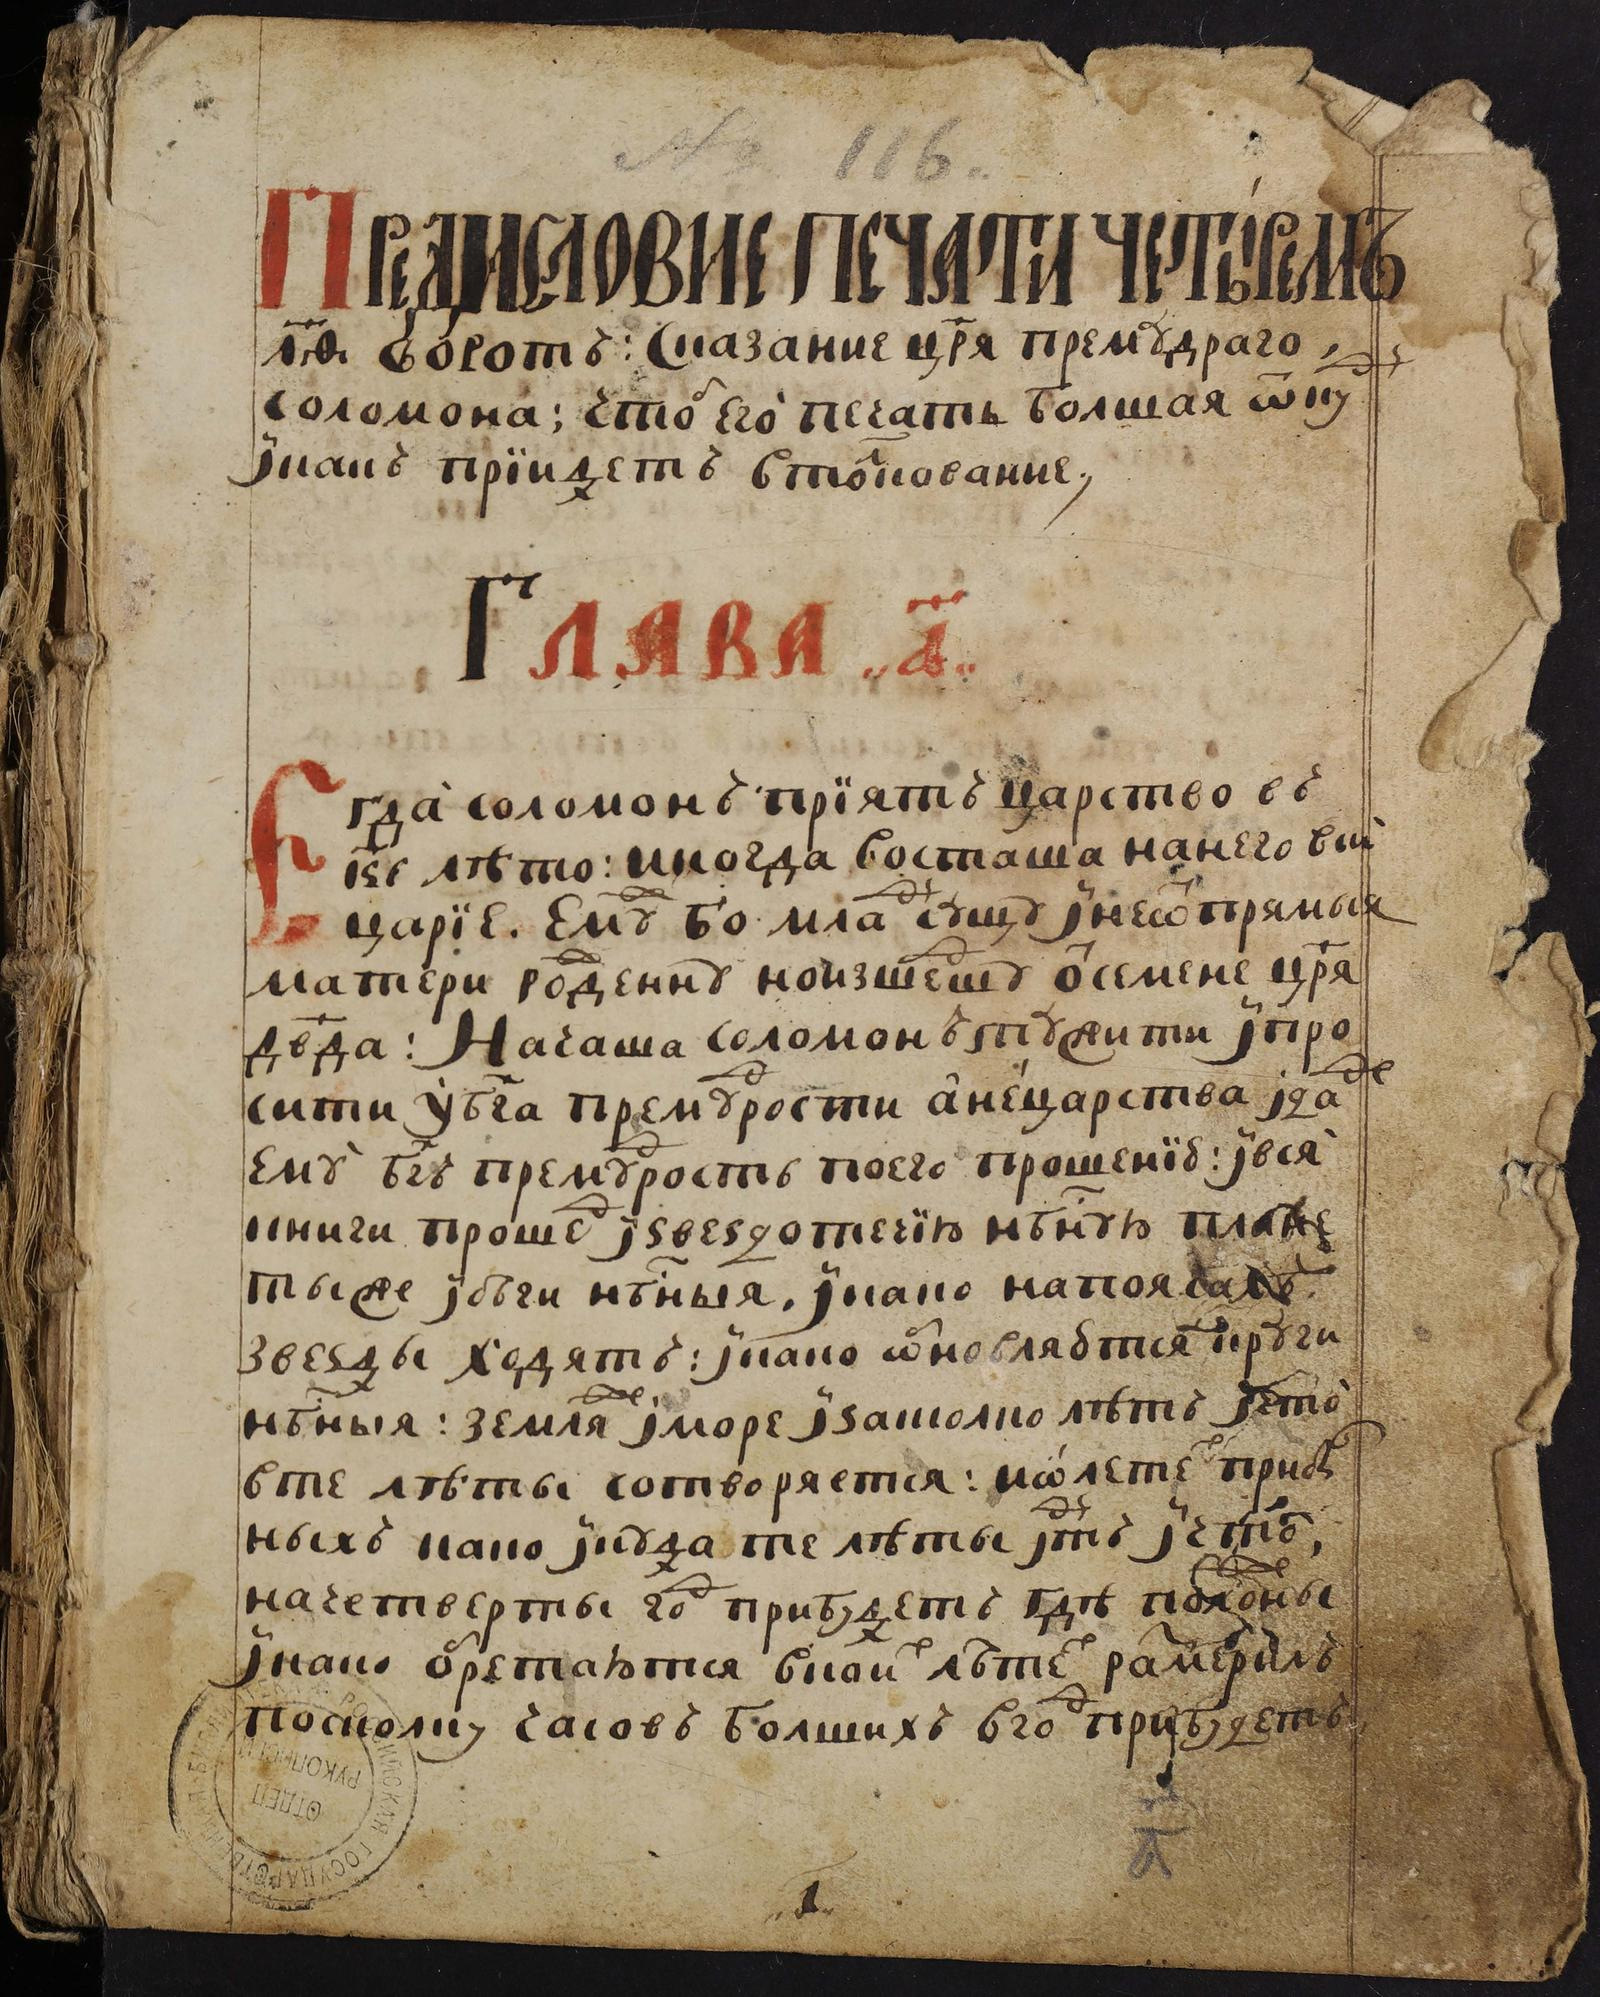 № 116.
Предисловие печати четыремъ
Сказание цр҃я премꙋдраго
соломона; что его печать болшая ѿкꙋ
и какъ прїидетъ в толкование,
Глава „а҃„
Егда соломонъ прїятъ царство въ
лѣто: иногда восташа на него вси
царїе. Емꙋ бо млаⷣ сꙋщꙋ и не ѿ прямыя
матери роⷤденнꙋ но изшеⷣшꙋ ѿ семене цр҃я
дв҃да: Начаша соломонъ тꙋжити и про
сити у бг҃а премꙋⷣрости а не царства и да
емꙋ бг҃ъ премꙋⷣрость по его прошенїю: и вся
книги прошеⷣ и ѕвеѕдотечїю нб҃нꙋю плане
ты же и беги нб҃ныя, и како на поясахъ
звеѕды ходятъ: и како ѡбновляются крꙋги
нб҃ныя: земля же и море и ѕа колко лѣтъ и что
в те лѣты сотворяется: и ѡ лете прибы
ныхъ како и кꙋда те лѣты и
на четверты гоⷣ прибꙋдетъ гдѣ
и како ѡбретаются в коиⷯ лѣтеⷯ
по сколкꙋ часовъ болшихъ в гоⷣ прибꙋдетъ
б҃
„1„
РОССИЙСКАЯ ГОСУДАРСТВЕННАЯ БИБЛИОТЕКА
ОТДЕЛ
РУКОПИСЕЙ